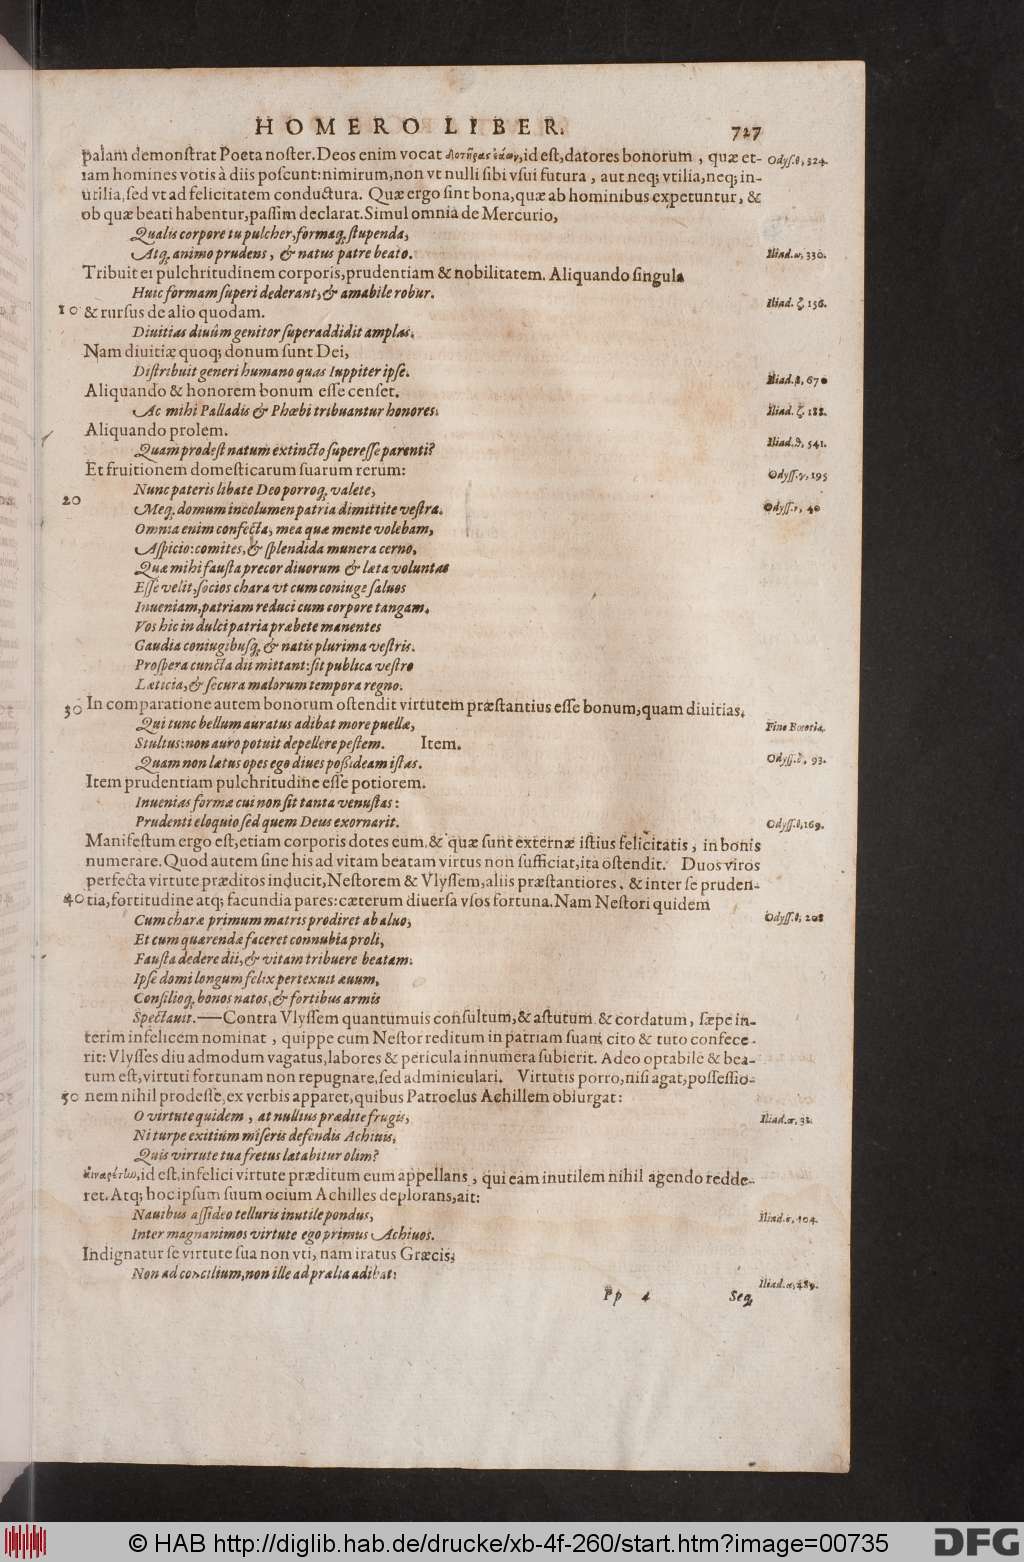 HOMERO LIBER. 727
palam demonſtrat Poeta noſter. Deos enim vocat δοτῆρας ἑάων, id eſt, datores bonorum, quæ et- Odyſ. θ, 324.
iam homines votis à diis poſcunt: nimirum, non vt nulli ſibi vſui futura, aut neq; vtilia, neq; in-
utilia, ſed vt ad felicitatem conductura. Quæ ergo ſint bona, quæ ab hominibus expetuntur, &
ob quæ beati habentur, paſſim declarat. Simul omnia de Mercurio,
Qualis corpore tu pulcher, formaq; ſtupenda,
Atq; animo prudens, & natus patre beato. Iliad. ω, 330.
Tribuit ei pulchritudinem corporis, prudentiam & nobilitatem. Aliquando ſingula
Huic formam ſuperi dederant, & amabile robur. Iliad. ζ, 156.
10 & rurſus de alio quodam.
Diuitias diuûm genitor ſuperaddidit amplas.
Nam diuitiæ quoq; donum ſunt Dei,
Diſtribuit generi humano quas Iuppiter ipſe. Iliad. β, 670
Aliquando & honorem bonum eſſe cenſet.
Ac mihi Palladis & Phœbi tribuantur honores. Iliad. ζ, 188.
Aliquando prolem.
Quam prodeſt natum extincto ſupereſſe parenti? Iliad. θ, 541.
Et fruitionem domeſticarum ſuarum rerum: Odyſſ. γ, 195
Nunc pateris libate Deo porroq; valete,
20 Meq; domum incolumen patria dimittite veſtra. Odyſſ. ν, 40
Omnia enim confecta, mea quæ mente volebam,
Aſpicio: comites, & ſplendida munera cerno,
Quæ mihi fauſta precor diuorum & læta voluntas
Eſſe velit, ſocios chara vt cum coniuge ſaluos
Inueniam, patriam reduci cum corpore tangam.
Vos hic in dulci patria præbete manentes
Gaudia coniugibuſq; & natis plurima veſtris.
Proſpera cuncta dii mittant: ſit publica veſtro
Læticia, & ſecura malorum tempora regno.
30 In comparatione autem bonorum oſtendit virtutem præſtantius eſſe bonum, quam diuitias.
Qui tunc bellum auratus adibat more puellæ, Fine Bœotiæ.
Stultus: non auro potuit depellere peſtem. Item.
Quam non lætus opes ego diues poßideam iſtas. Odyſſ. δ, 93.
Item prudentiam pulchritudine eſſe potiorem.
Inuenias formæ cui non ſit tanta venuſtas:
Prudenti eloquio ſed quem Deus exornarit. Odyſſ. θ, 169.
Manifeſtum ergo eſt, etiam corporis dotes eum, & quæ ſunt externæ iſtius felicitatis, in bonis
numerare. Quod autem ſine his ad vitam beatam virtus non ſufficiat, ita oſtendit. Duos viros
perfecta virtute præditos inducit, Neſtorem & Vlyſſem, aliis præſtantiores, & inter ſe pruden-
40 tia, fortitudine atq; facundia pares: cæterum diuerſa vſos fortuna. Nam Neſtori quidem
Cum charæ primum matris prodiret ab aluo, Odyſſ. δ, 208
Et cum quærendæ faceret connubia proli,
Fauſta dedere dii, & vitam tribuere beatam.
Ipſe domi longum felix pertexuit æuum,
Conſilioq; bonos natos, & fortibus armis
Spectauit.—Contra Vlyſſem quantumuis conſultum, & aſtutum & cordatum, ſæpe in-
terim infelicem nominat, quippe cum Neſtor reditum in patriam ſuam cito & tuto confece-
rit: Vlyſſes diu admodum vagatus, labores & pericula innumera ſubierit. Adeo optabile & bea-
tum eſt, virtuti fortunam non repugnare, ſed adminiculari. Virtutis porro, niſi agat, poſſeſſio-
50 nem nihil prodeſſe, ex verbis apparet, quibus Patroclus Achillem obiurgat:
O virtute quidem, at nullius prædite frugis, Iliad. π, 31.
Ni turpe exitium miſeris defendis Achiuis,
Quis virtute tua fretus lætabitur olim?
αἰναρέτην, id eſt, infelici virtute præditum eum appellans, qui eam inutilem nihil agendo redde-
ret. Atq; hoc ipſum ſuum ocium Achilles deplorans, ait:
Nauibus aſſideo telluris inutile pondus, Iliad. σ, 104.
Inter magnanimos virtute ego primus Achiuos.
Indignatur ſe virtute ſua non vti, nam iratus Græcis,
Non ad concilium, non ille ad prælia adibat: Iliad. α, 489.
Pp 4 Seq;
© HAB http://diglib.hab.de/drucke/xb-4f-260/start.htm?image=00735
DFG